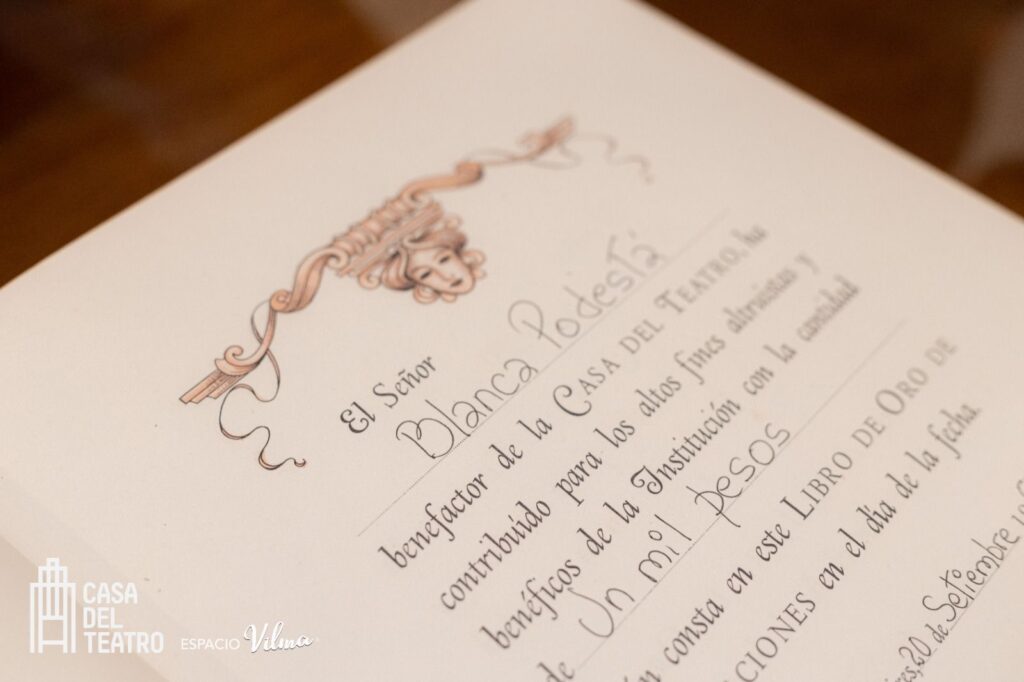 El Señor
Blanca Podestá
benefactor de la CASA DEL TEATRO, ha
contribuído para los altos fines altruistas y
benéficos de la Institución con la cantidad
de Un mil pesos
consta en este LIBRO DE ORO DE
CIONES en el día de la fecha.
20 de Setiembre
CASA
DEL
TEATRO
ESPACIO Vilma